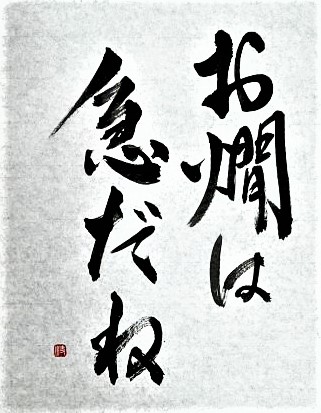 お燗は
急だね